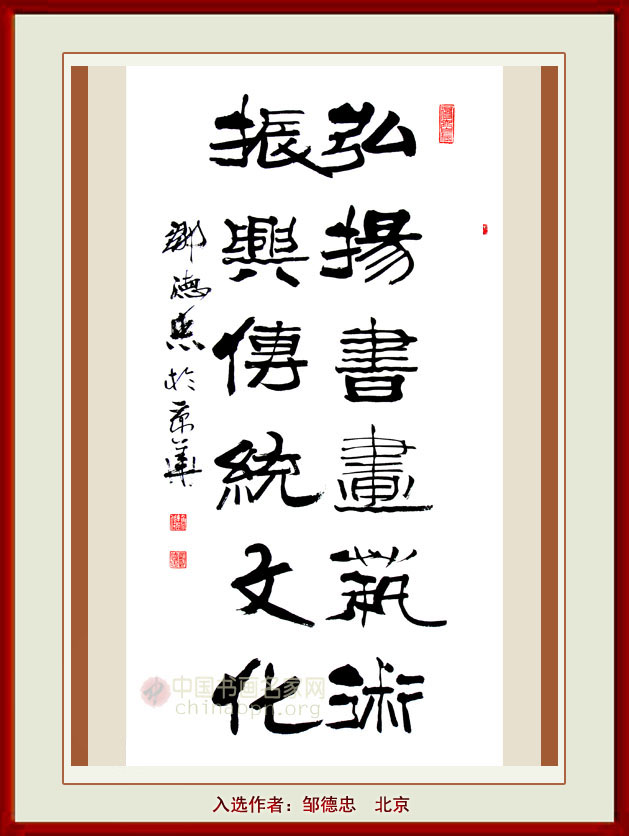 弘揚書畫藝術
振興傳統文化
鄒德忠於京華
中国书画名家网
chinaopn.org
入选作者：邹德忠　北京